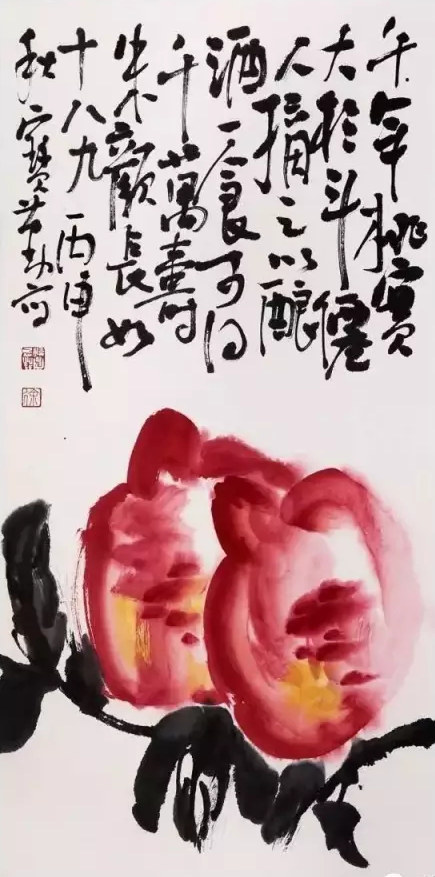 千年桃實
大於斗僊
人摘之以釀
酒一食可得
千萬壽
朱顏長如
十八九 丙申
秋寶